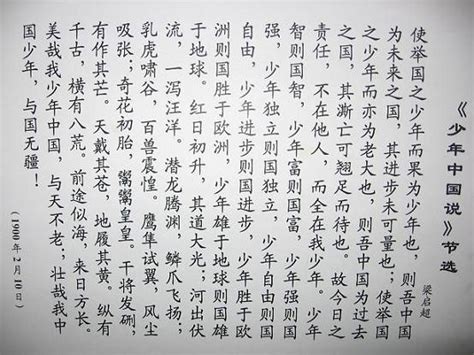 《少年中国说》节选
梁启超
使举国之少年而果为少年也，则吾中国
为未来之国，其进步未可量也；使举国
之少年而亦为老大也，则吾中国为过去
之国，其澌亡可翘足而待也。故今日之
责任，不在他人，而全在我少年。少年
智则国智，少年富则国富，少年强则国
强，少年独立则国独立，少年自由则国
自由，少年进步则国进步，少年胜于欧
洲则国胜于欧洲，少年雄于地球则国雄
于地球。红日初升，其道大光；河出伏
流，一泻汪洋。潜龙腾渊，鳞爪飞扬；
乳虎啸谷，百兽震惶。鹰隼试翼，风尘
吸张；奇花初胎，鬻鬻皇皇。干将发硎，
有作其芒。天戴其苍，地履其黄。纵有
千古，横有八荒。前途似海，来日方长。
美哉我少年中国，与天不老；壮哉我中
国少年，与国无疆！
（1900年2月10日）